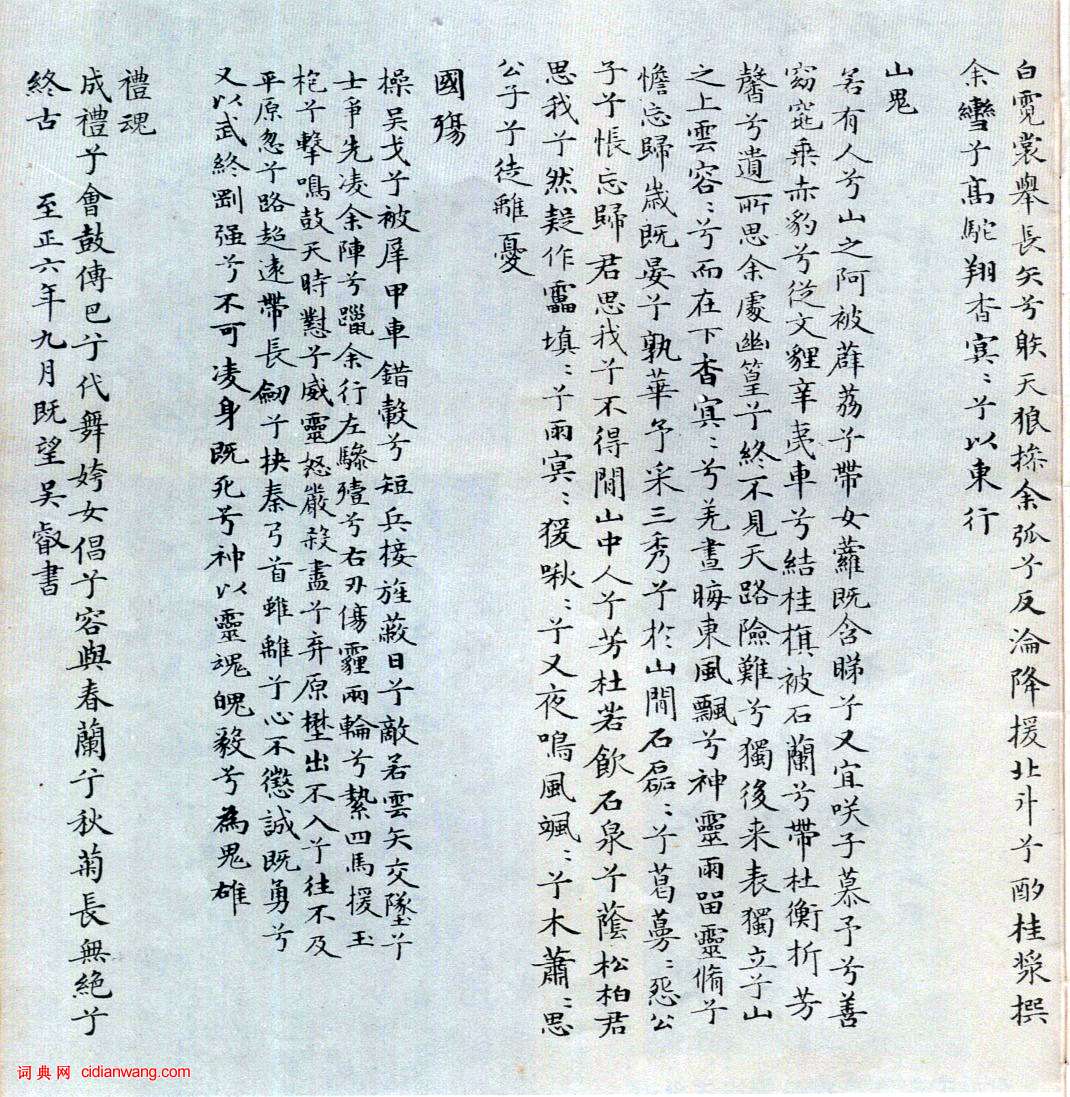 白霓裳舉長矢兮䠶天狼㨿余弧兮反淪降援北斗兮酌桂漿撰
余轡兮高駝翔杳冥〻兮以東行
山鬼
若有人兮山之阿被薜荔兮帶女蘿既含睇兮又宜咲子慕予兮善
窈窕乘赤豹兮從文貍辛夷車兮結桂旗被石蘭兮帶杜衡折芳
馨兮遺所思余處幽篁兮終不見天路險難兮獨後来表獨立兮山
之上雲容〻兮而在下杳冥〻兮羌晝晦東風飄兮神靈雨留靈脩兮
憺忘歸歲既晏兮孰華予采三秀兮於山間石磊〻兮葛蔓〻怨公
子兮悵忘歸君思我兮不得間山中人兮芳杜若飲石泉兮蔭松柏君
思我兮然疑作靁填〻兮雨冥〻猨啾〻兮又夜鳴風颯〻兮木蕭〻思
公子兮徒離憂
國殤
操吳戈兮被犀甲車錯轂兮短兵接旌蔽日兮敵若雲矢交墜兮
士爭先凌余陣兮躐余行左驂殪兮右刃傷霾兩輪兮縶四馬援玉
枹兮擊鳴鼓天時懟兮威靈怒嚴殺盡兮弃原壄出不入兮往不及
平原忽兮路超遠帶長劒兮挾秦弓首雖離兮心不懲誠既勇兮
又以武終剛强兮不可凌身既死兮神以靈魂魄毅兮為鬼雄
禮魂
成禮兮會鼓傳巴兮代舞姱女倡兮容與春蘭兮秋菊長無絕兮
終古 至正六年九月既望吳睿書
词典网 cidianwang.com